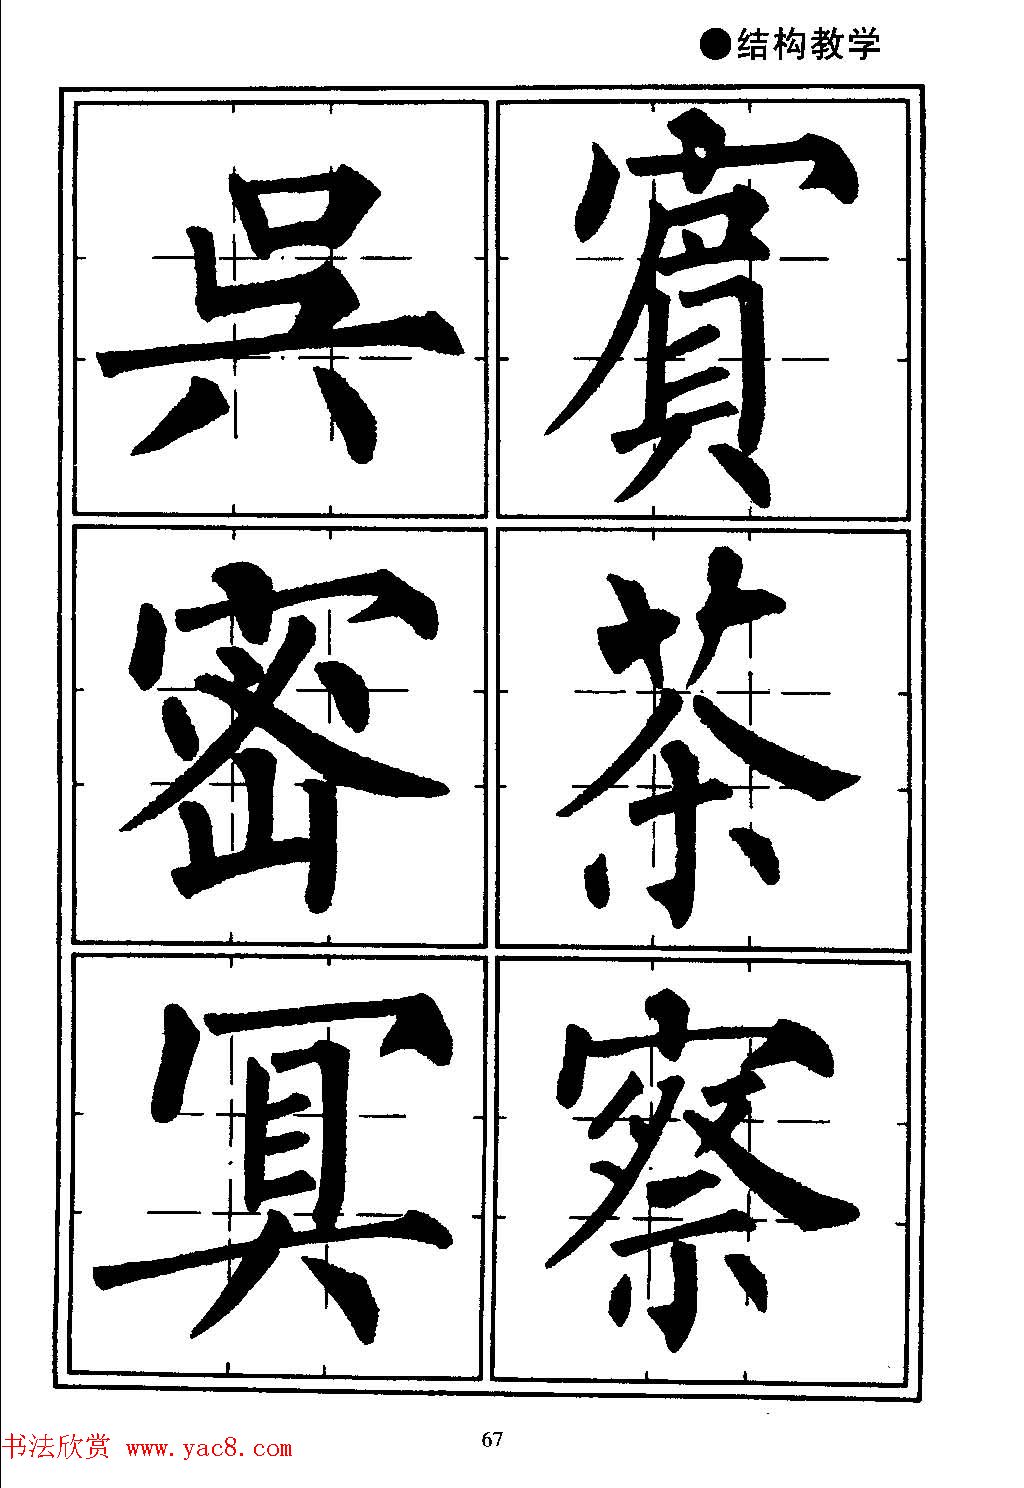 ●结构教学
吳 賓
密 茶
冥 察
书法欣赏 www.yac8.com
67